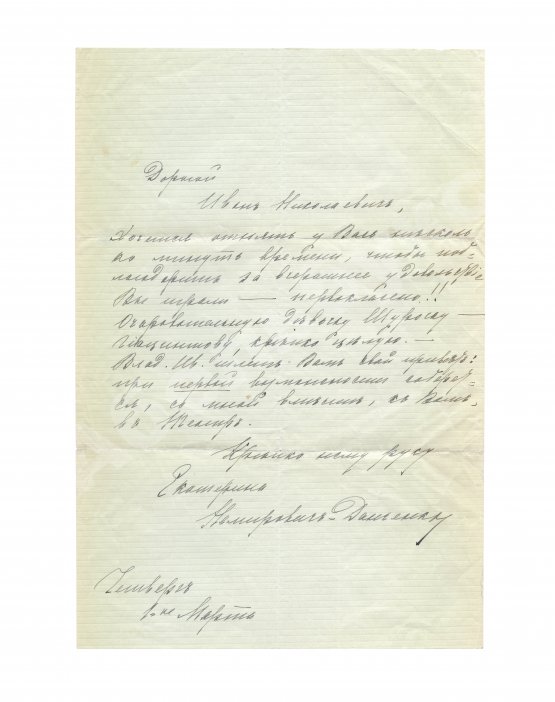 Дорогой
Иванъ Николаевичъ,
Хочется отнять у Васъ нѣсколь
ко минутъ времени, чтобы поб-
лагодарить за вчерашнее удовольствіе
Вы играли — первоклассно!!
Очаровательную дѣвочку Шурочку —
крѣпко цѣлую. —
Влад. Ив. шлетъ Вамъ свой привѣтъ:
при первой возможности соберет-
ся, со мной вмѣстѣ, къ Вамъ
въ театръ.
Крѣпко жму руку
Екатерина
Немировичъ-Данченко
Четвергъ
1-ое Марта